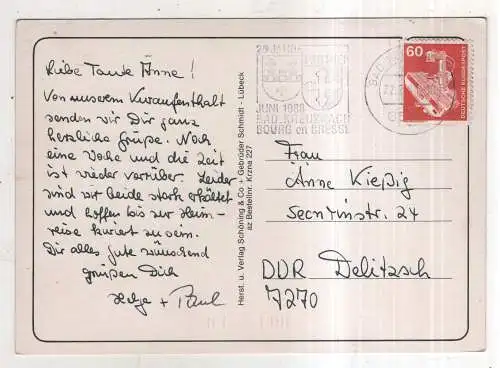 Liebe Tante Änne!
Von unserem Kuraufenthalt
senden wir Dir ganz
herzliche Grüße. Noch
eine Woche und die Zeit
ist wieder vorrüber. Leider
sind wir beide stark erkältet
und hoffen bis zur Heim-
reise kuriert zu sein.
Dir alles gute wünschend
grüßen Dich
Helga + Paul
Herst. u. Verlag Schöning & Co + Gebrüder Schmidt - Lübeck
az Bestellnr. Krzna 227
JUNI 1988
BAD KREUZNACH
BOURG en BRESSE
60
DEUTSCHE BUNDESPOST
Frau
Änne Kießig
Securiusstr. 24
DDR Delitzsch
7270